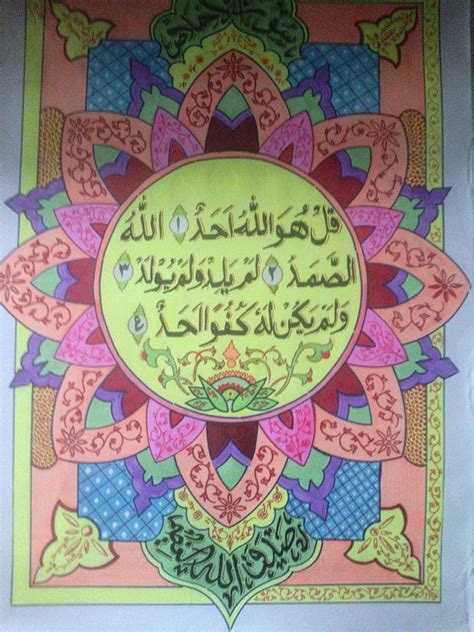 قُلْ هُوَ اللّٰهُ اَحَدٌ ١ اَللّٰهُ
الصَّمَدُ ٢ لَمْ يَلِدْ وَلَمْ يُولَدْ ٣
وَلَمْ يَكُنْ لَهٗ كُفُوًا اَحَدٌ ٤
صدق الله العظيم